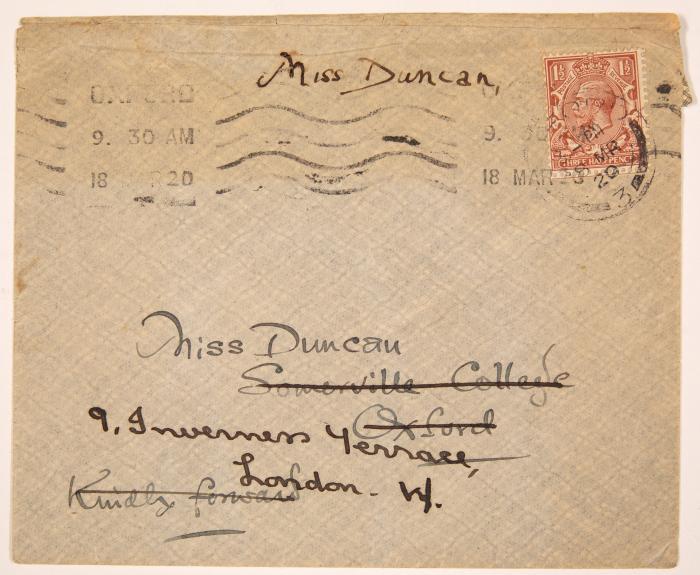 Miss Duncan,
OXFORD
9. 30 AM
18 MAR 20
9. 30
18 MAR
1½ 1½
THREE HALF PENCE
MR
20
Miss Duncan
Somerville College
Oxford
9, Inverness Terrace,
London. W.
Kindly forward